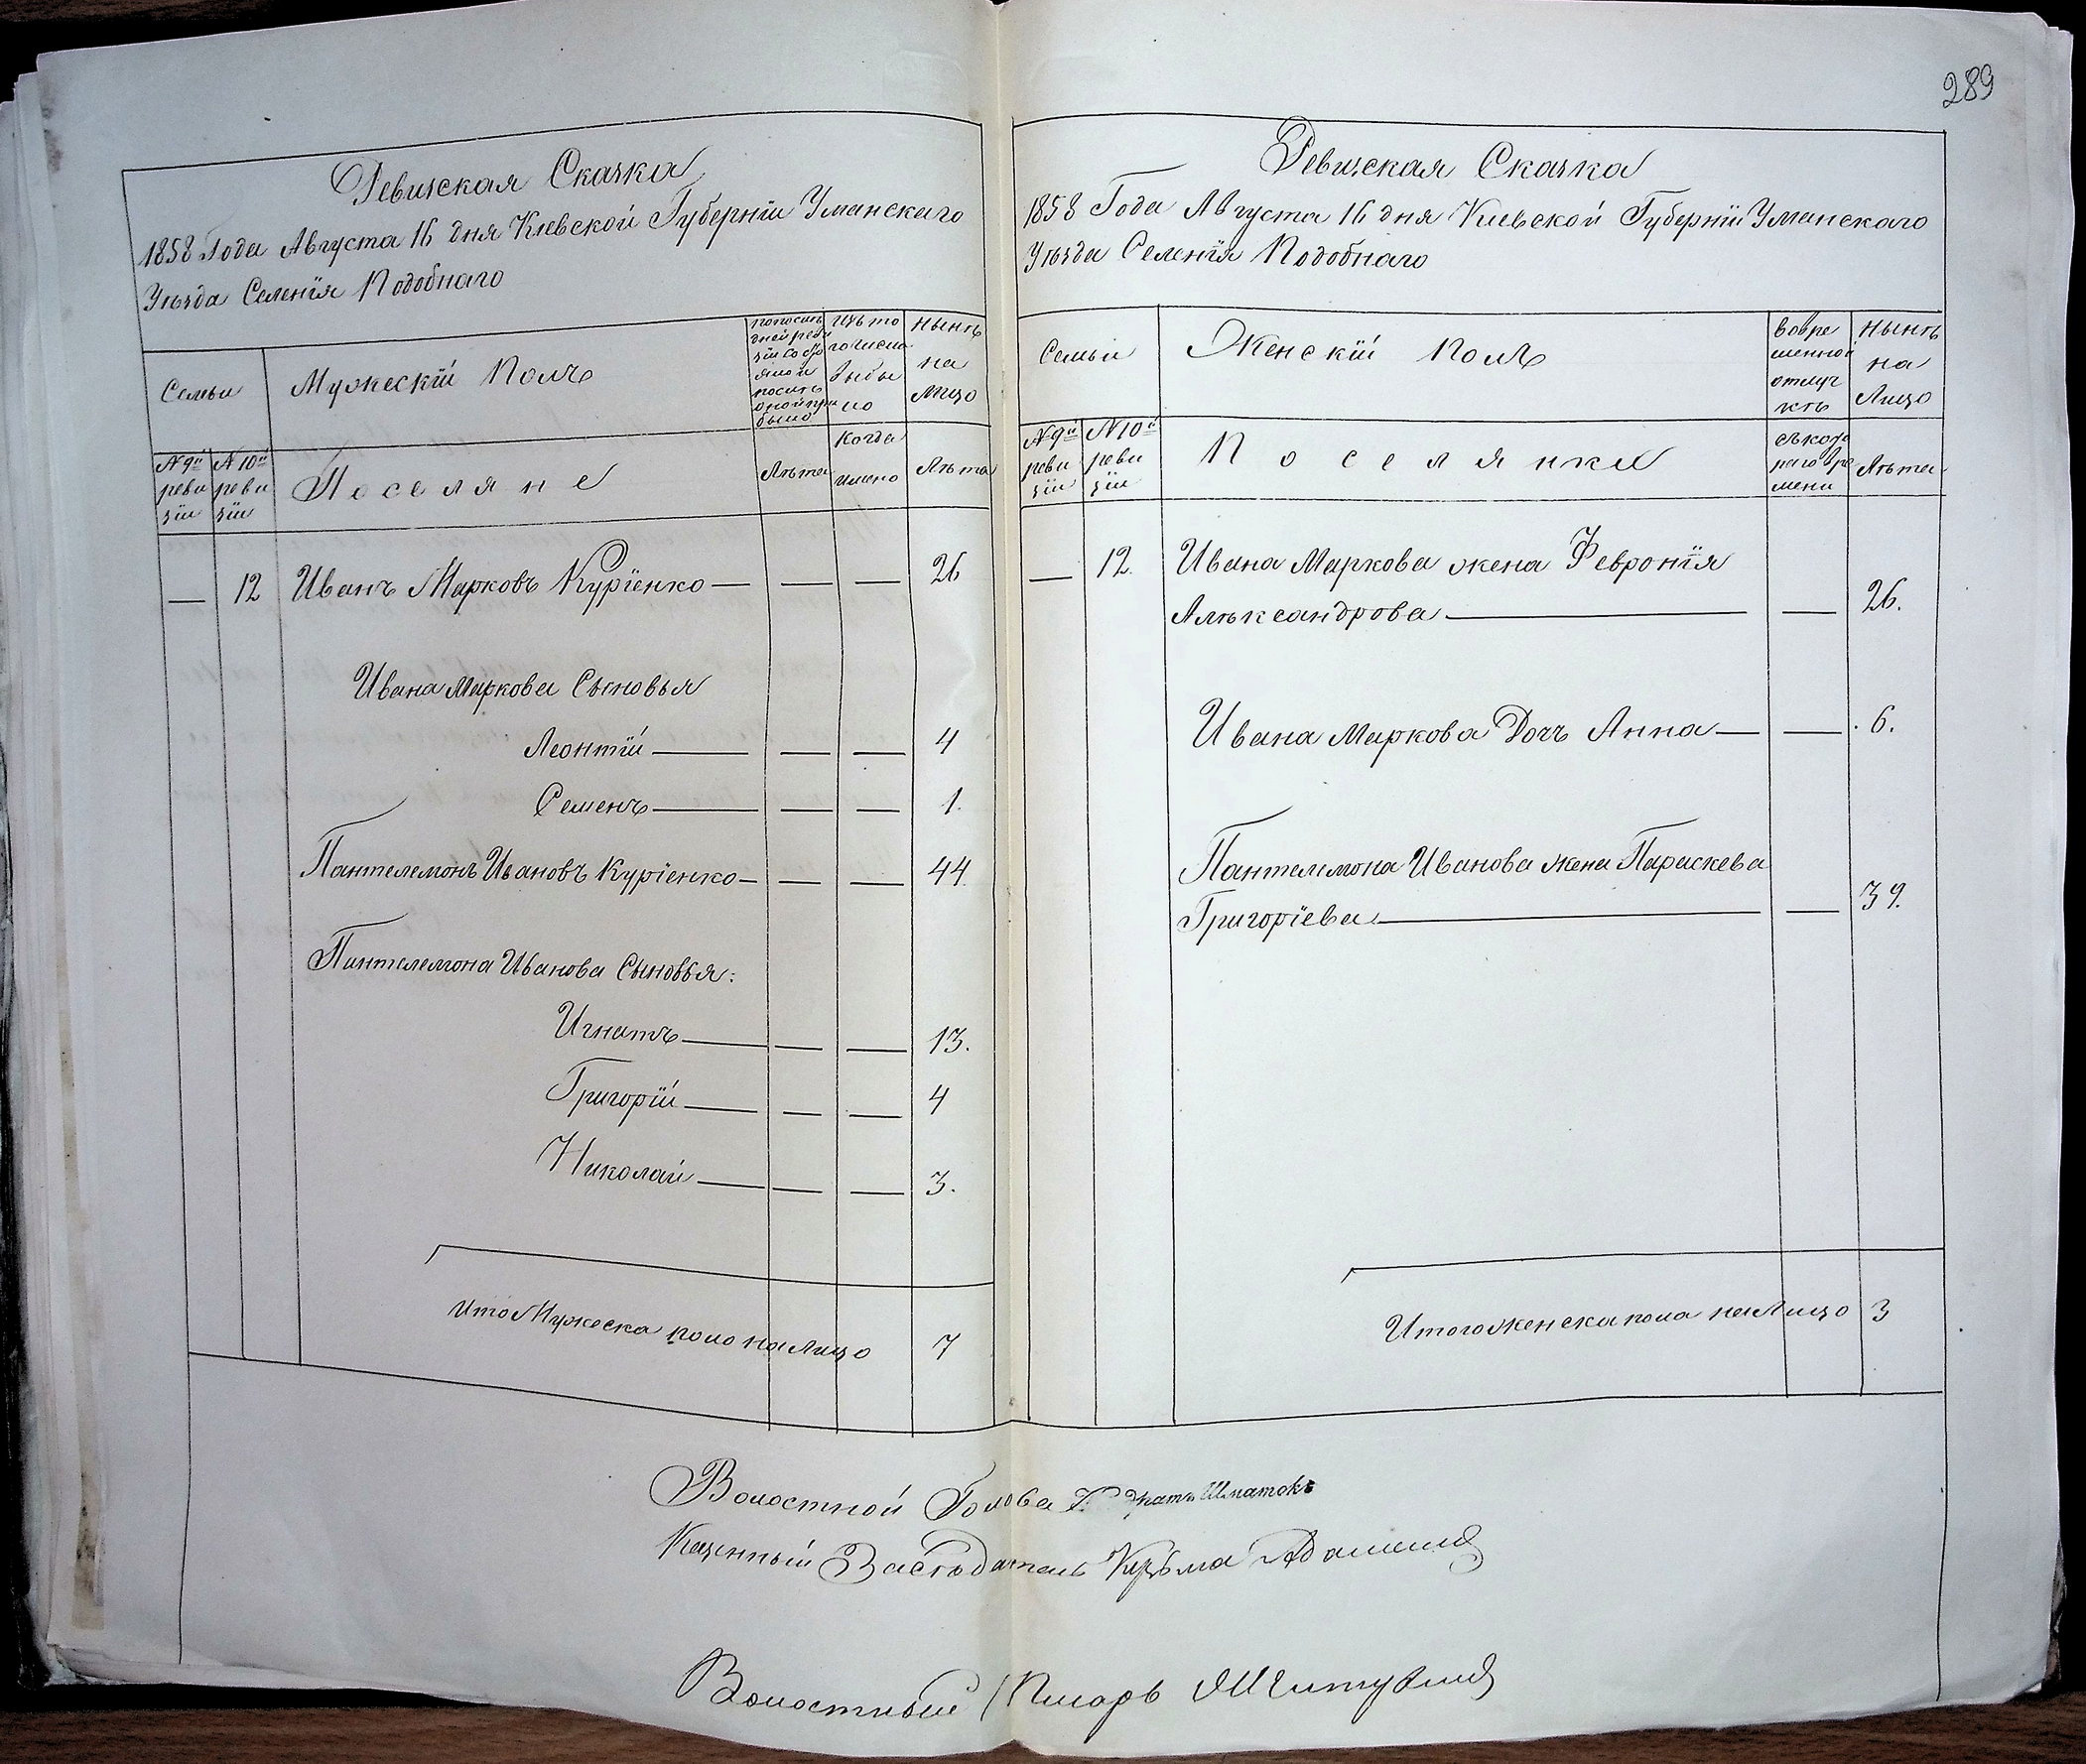 289
Ревизская Сказка
1858 Года Августа 16 дня Кіевской Губерніи Уманскаго
Уѣзда Селенія Подобнаго
Семьи
Мужескій Полъ
Изъ то
го числа
выбы
ло
Нынѣ
на
Лицо
№ 9й
реви
зіи
№ 10й
реви
зіи
Поселяне
Лѣта
Когда
имено
Лѣта
12 Иванъ Марковъ Куріенко — — — 26
Ивана Маркова Сыновья
Леонтій — — — 4
Семенъ — — — 1.
Пантелемонъ Ивановъ Куріенко — — — 44
Пантелемона Иванова Сыновья:
Игнатъ — — — 13.
Григорій — — — 4
Николай — — — 3.
Итого Мужеска поло на Лицо 7
Ревизская Сказка
1858 Года Августа 16 дня Киевской Губерніи Уманскаго
Уѣзда Селенія Подобнаго
Семьи
Женскій Полъ
Вовре
менной
отлуч
кѣ
Нынѣ
на
Лицо
№ 9й
реви
зіи
№ 10й
реви
зіи
Поселянки
съ кото
раго вре
мени
Лѣта
— 12. Ивана Маркова жена Февронія
Алѣксандрова — — 26.
Ивана Маркова Дочъ Анна — — 6.
Пантелемона Иванова жена Параскева
Григоріева — — 39.
Итого женска пола на Лицо 3
Волостной Голова Шматокъ
Казенный Засѣдатель Кузьма
Волостный Писарь